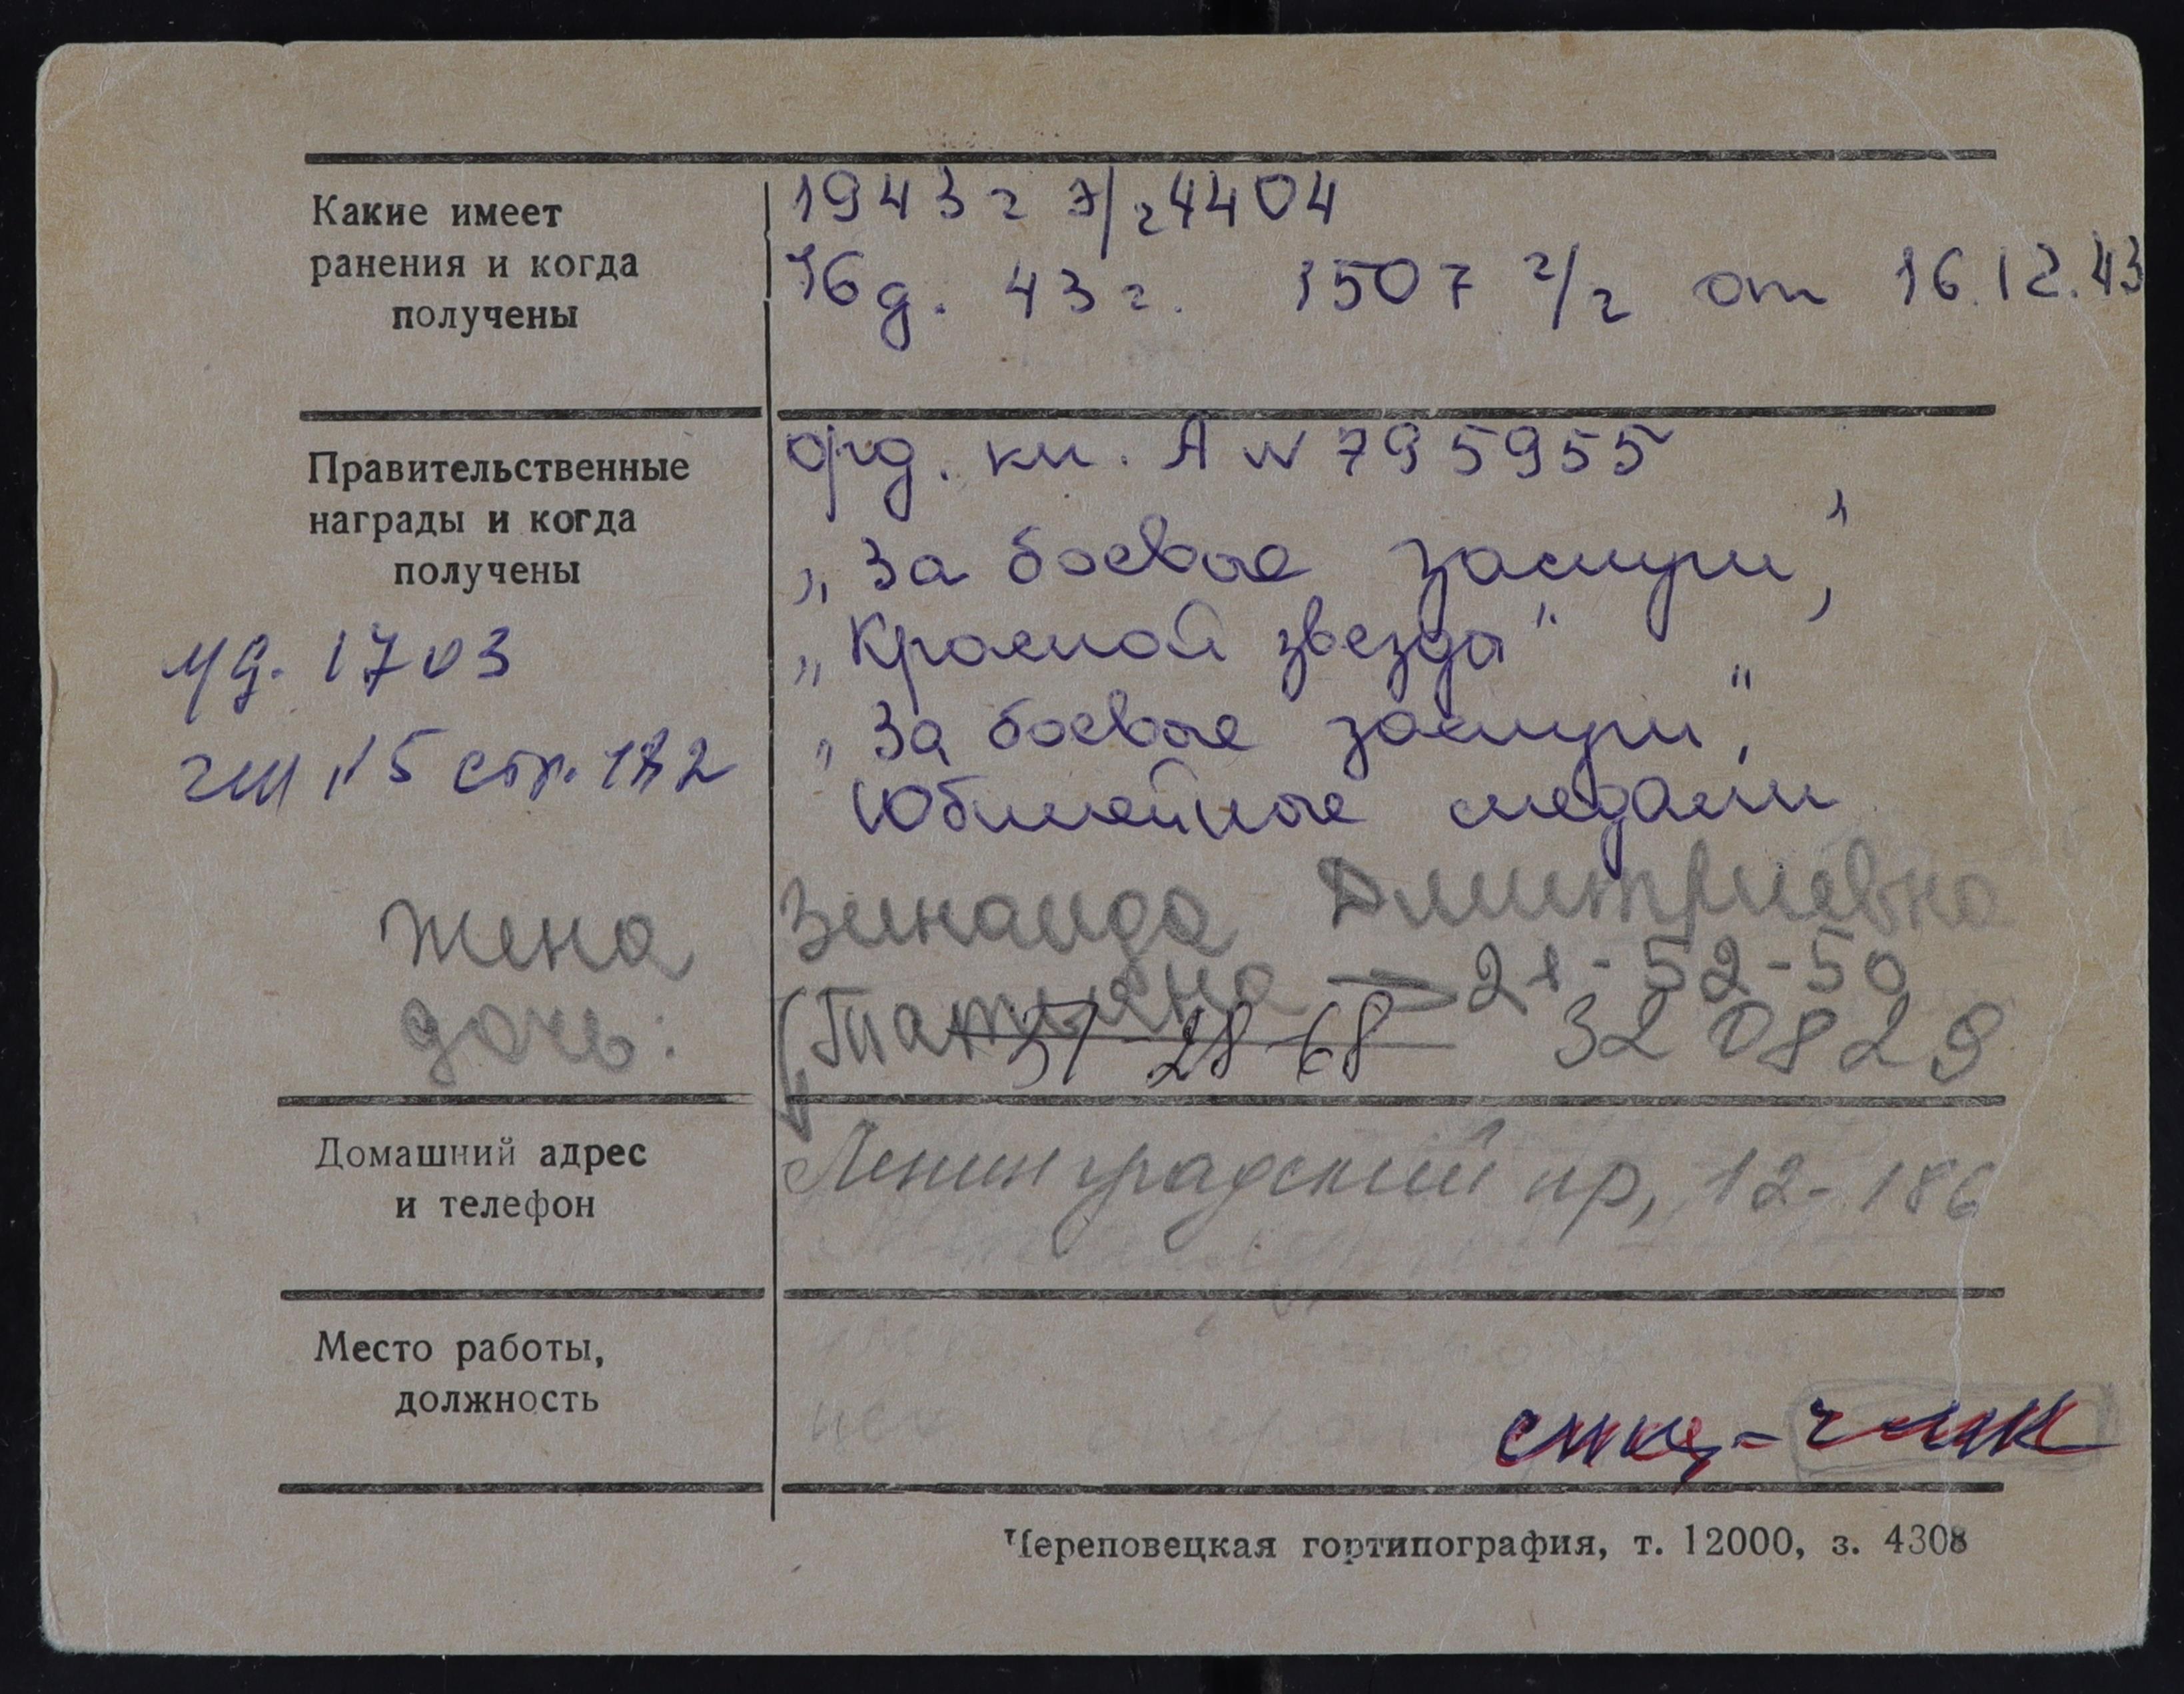 Какие имеет
ранения и когда
получены
1943 г э/г 4404
16 д. 43 г. 1507 г/г от 16.12.43
Правительственные
награды и когда
получены
орд. кн. А № 795955
„За боевые заслуги"
„Красной звезда"
„За боевые заслуги"
Юбилейные медали
уд. 1703
стр. 182
жена Зинаида Дмитриевна
дочь: Татьяна - 21-52-50
37-28-68 32 08 29
Домашний адрес
и телефон
Ленинградский пр, 12-186
Место работы,
должность
Череповецкая гортипография, т. 12000, з. 4308